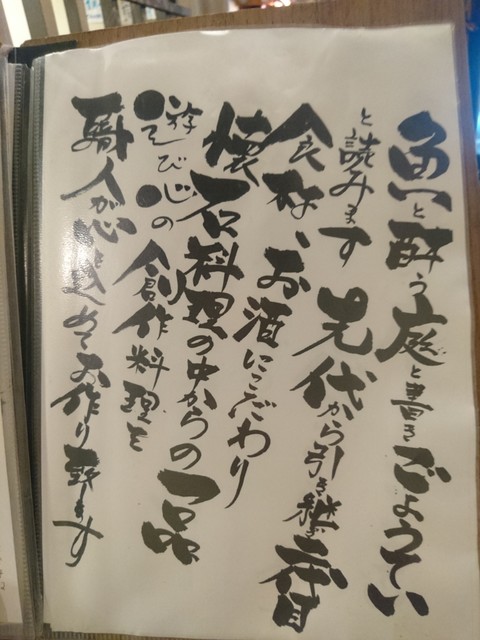 魚と酔う庭と書き ごようてい
と読みます 先代から引き継ぎ 二代目
食材、お酒にこだわり
懐石料理の中からの一品
遊び心の創作料理を
職人が心を込めてお作り致します